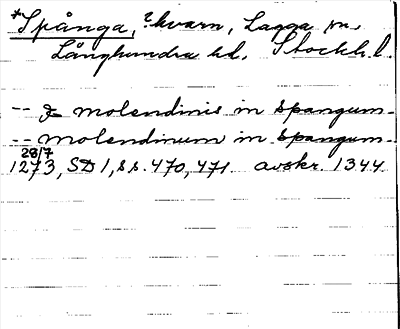 *Spånga, ?kvarn, Lagga sn.
Långhundra hd. Stockh. l.
-- & molendinis in spangum -
-- molendinum in spangum -
28/7
1273, SD 1, ss. 470, 471 avskr. 1344